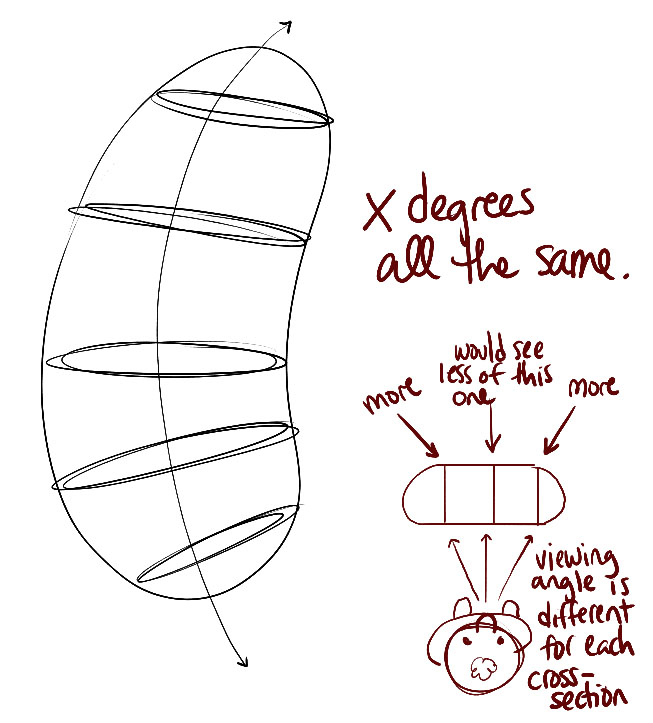 X degrees
all the same.
would see
less of this
one
more
more
viewing
angle is
different
for each
cross-
section